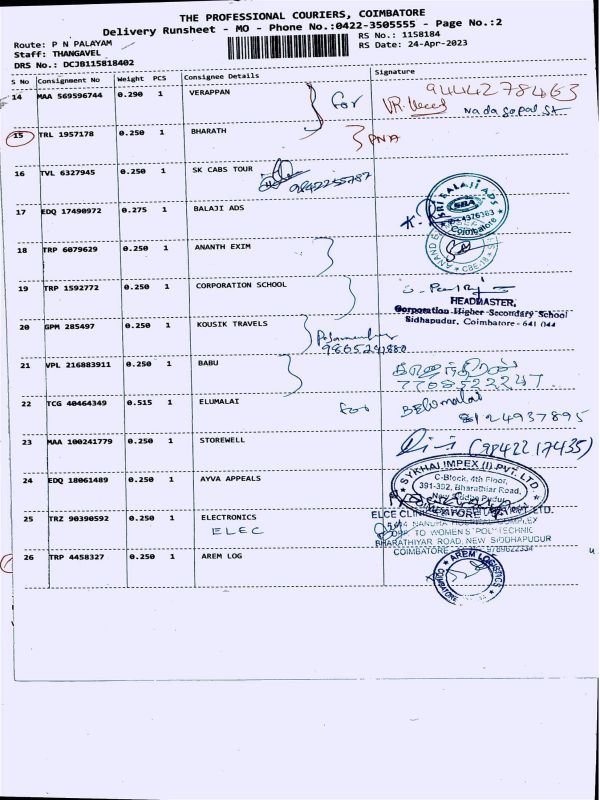 THE PROFESSIONAL COURIERS, COIMBATORE
Delivery Runsheet - MO - Phone No.:0422-3505555 - Page No.:2
Route: P N PALAYAM
RS No.: 1158184
Staff: THANGAVEL
RS Date: 24-Apr-2023
DRS No.: DCJB115818402
S No Consignment No Weight PCS Consignee Details Signature
14 MAA 569596744 0.290 1 VERAPPAN for 9444278463
15 TRL 1957178 0.250 1 BHARATH PNA
16 TVL 6327945 0.250 1 SK CABS TOUR 9842255787
17 EDQ 17490972 0.275 1 BALAJI ADS
SRI BALAJI ADS
SBA
Coimbatore
18 TRP 6079629 0.250 1 ANANTH EXIM
19 TRP 1592772 0.250 1 CORPORATION SCHOOL
HEADMASTER,
Corporation Higher Secondary School
Sidhapudur, Coimbatore - 641 044
20 GPM 285497 0.250 1 KOUSIK TRAVELS
21 VPL 216883911 0.250 1 BABU
22 TCG 40464349 0.515 1 ELUMALAI for
8124937895
23 MAA 100241779 0.250 1 STOREWELL (9842217435)
24 EDQ 18061489 0.250 1 AYVA APPEALS
SYKHAI IMPEX (I) PVT. LTD.
C-Block, 4th Floor,
391-392, Bharathiar Road,
25 TRZ 90390592 0.250 1 ELECTRONICS
ELEC
TO WOMEN'S POLYTECHNIC
BHARATHIYAR ROAD, NEW SIDDHAPUDUR
COIMBATORE 9789622334
26 TRP 4458327 0.250 1 AREM LOG
AREM LOGISTICS
COIMBATORE